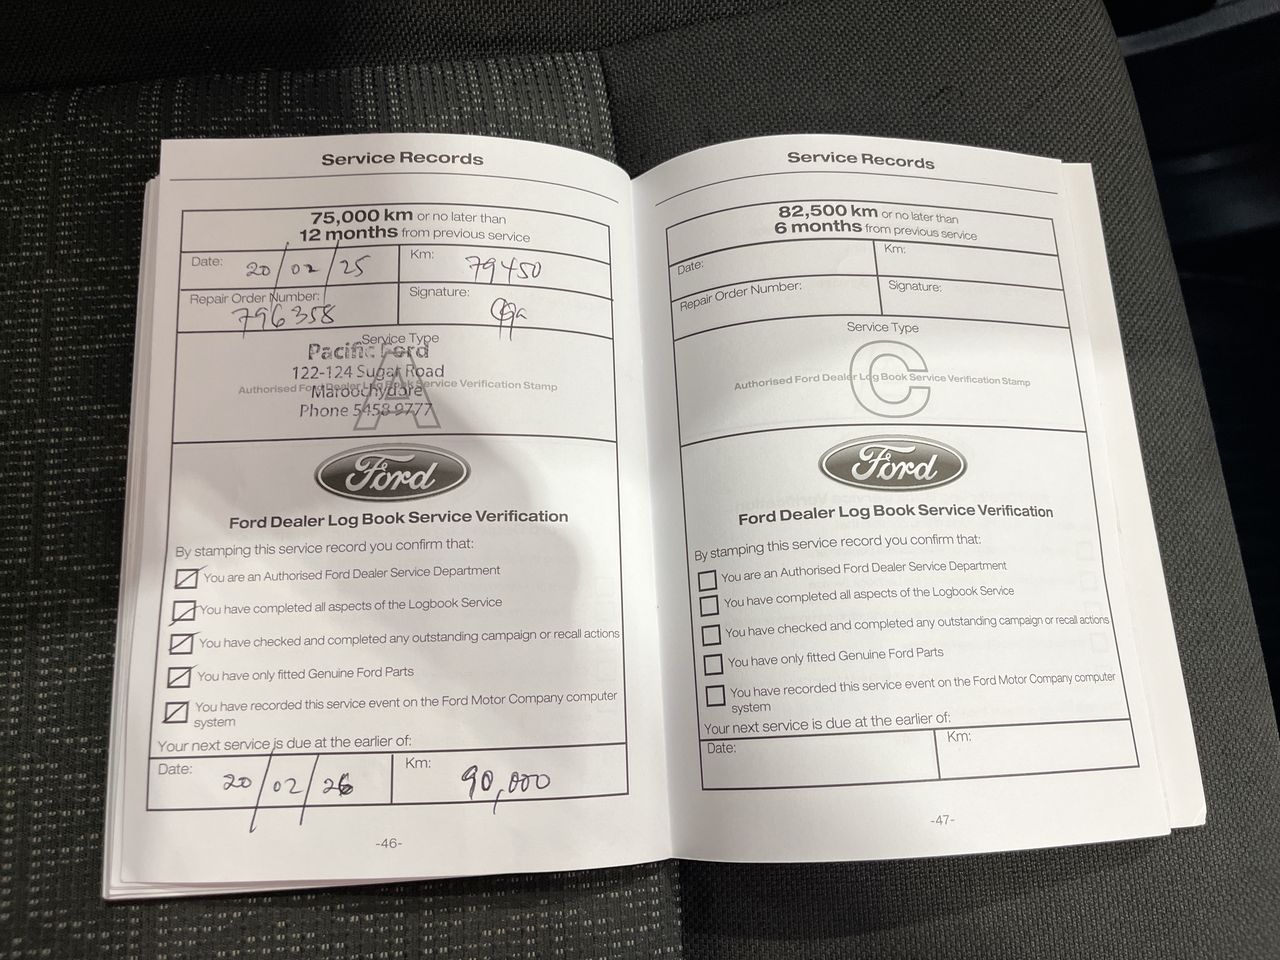 Service Records
75,000 km or no later than
12 months from previous service
Date: 20/02/25 Km: 79450
Repair Order Number: 796358 Signature:
Service Type
A
Authorised Ford Dealer Log Book Service Verification Stamp
Pacific Ford
122-124 Sugar Road
Maroochydore
Phone 5458 9777
Ford
Ford Dealer Log Book Service Verification
By stamping this service record you confirm that:
You are an Authorised Ford Dealer Service Department
You have completed all aspects of the Logbook Service
You have checked and completed any outstanding campaign or recall actions
You have only fitted Genuine Ford Parts
You have recorded this service event on the Ford Motor Company computer
system
Your next service is due at the earlier of:
Date: 20/02/26 Km: 90,000
-46-
Service Records
82,500 km or no later than
6 months from previous service
Date: Km:
Repair Order Number: Signature:
Service Type
C
Authorised Ford Dealer Log Book Service Verification Stamp
Ford
Ford Dealer Log Book Service Verification
By stamping this service record you confirm that:
You are an Authorised Ford Dealer Service Department
You have completed all aspects of the Logbook Service
You have checked and completed any outstanding campaign or recall actions
You have only fitted Genuine Ford Parts
You have recorded this service event on the Ford Motor Company computer
system
Your next service is due at the earlier of:
Date: Km:
-47-